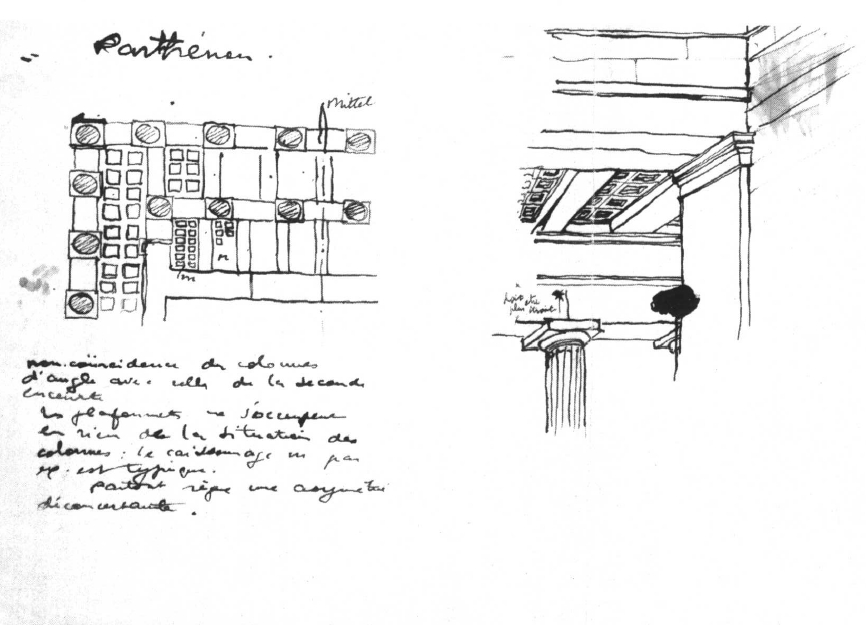 Parthénon.
Mittel
m
n
non-coïncidence des colonnes
d'angle avec celle de la seconde
enceinte
les plafonnets ne s'occupent
en rien de la situation des
colonnes : le caissonnage m par
ex. est typique.
partout règne une asymétrie
déconcertante.
plus étroit